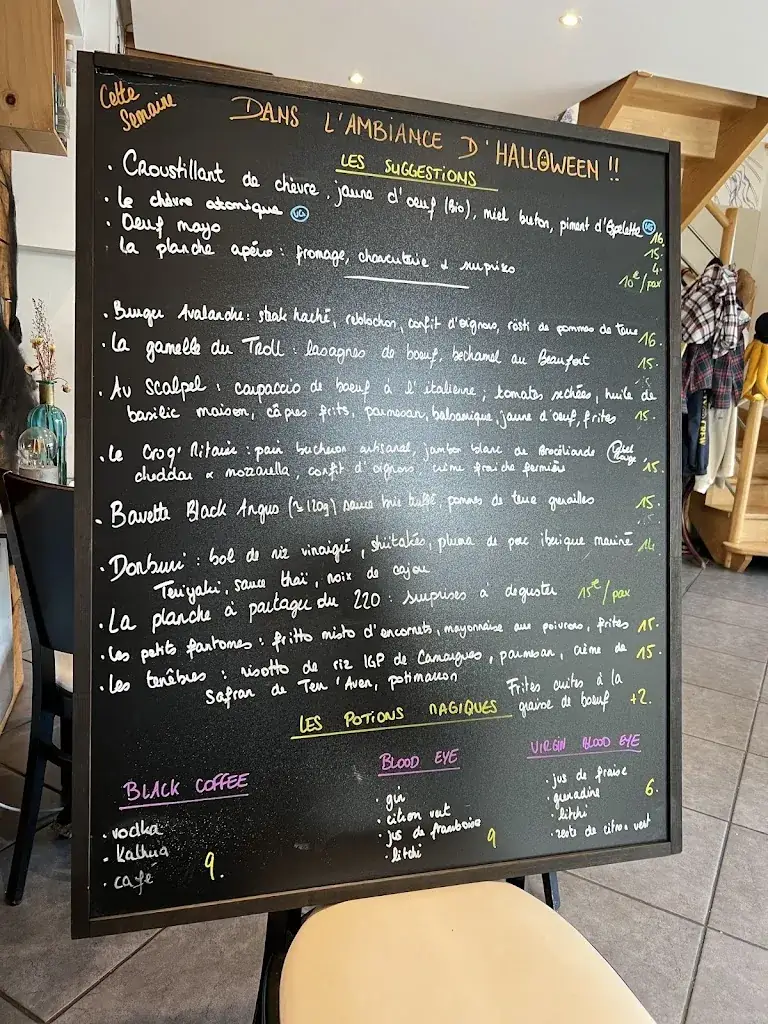 Cette Semaine
DANS L'AMBIANCE D'HALLOWEEN !!
LES SUGGESTIONS
• Croustillant de chèvre, jaune d'oeuf (Bio), miel breton, piment d'Espelette VG 16.
• Le chèvre atomique VG 15.
• Oeuf mayo 4.
• La planche apéro : fromage, charcuterie & surprises 10€/pax
• Burger Avalanche : steak haché, reblochon, confit d'oignons, rösti de pommes de terre 16.
• La gamelle du Troll : lasagnes de boeuf, bechamel au Beaufort 15.
• Au Scalpel : carpaccio de boeuf à l'italienne ; tomates sechées, huile de
basilic maison, câpres frits, parmesan, balsamique, jaune d'oeuf, frites 15.
• Le Croq' : pain bucheron artisanal, jambon blanc de Brocéliande Label Rouge,
cheddar & mozzarella, confit d'oignons, crème fraiche fermière 15.
• Bavette Black Angus (≈ 120g) sauce brie truffé, pommes de terre grenailles 15.
• Donburi : bol de riz vinaigré, shiitakés, pluma de porc iberique mariné 14.
Teriyaki, sauce thaï, noix de cajou
• La planche à partager du 220 : surprises à deguster 15€/pax
• Les petits fantomes : fritto misto d'encornets, mayonnaise aux poivrons, frites 15.
• Les tenèbres : risotto de riz IGP de Camargues, parmesan, crème de 15.
Safran de Ten'Aven, potimarron
Frites cuites à la
graisse de boeuf +2.
LES POTIONS MAGIQUES
BLACK COFFEE
• vodka
• Kalhua
• cafe
9.
BLOOD EYE
• gin
• citron vert
• jus de framboise
• litchi
9
VIRGIN BLOOD EYE
• jus de fraise
• grenadine
• litchi
• zeste de citron vert
6.